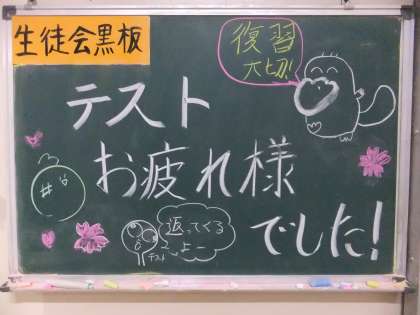 生徒会黒板
復習
大切!
テスト
お疲れ様
でした!
返ってくる
よー
テスト